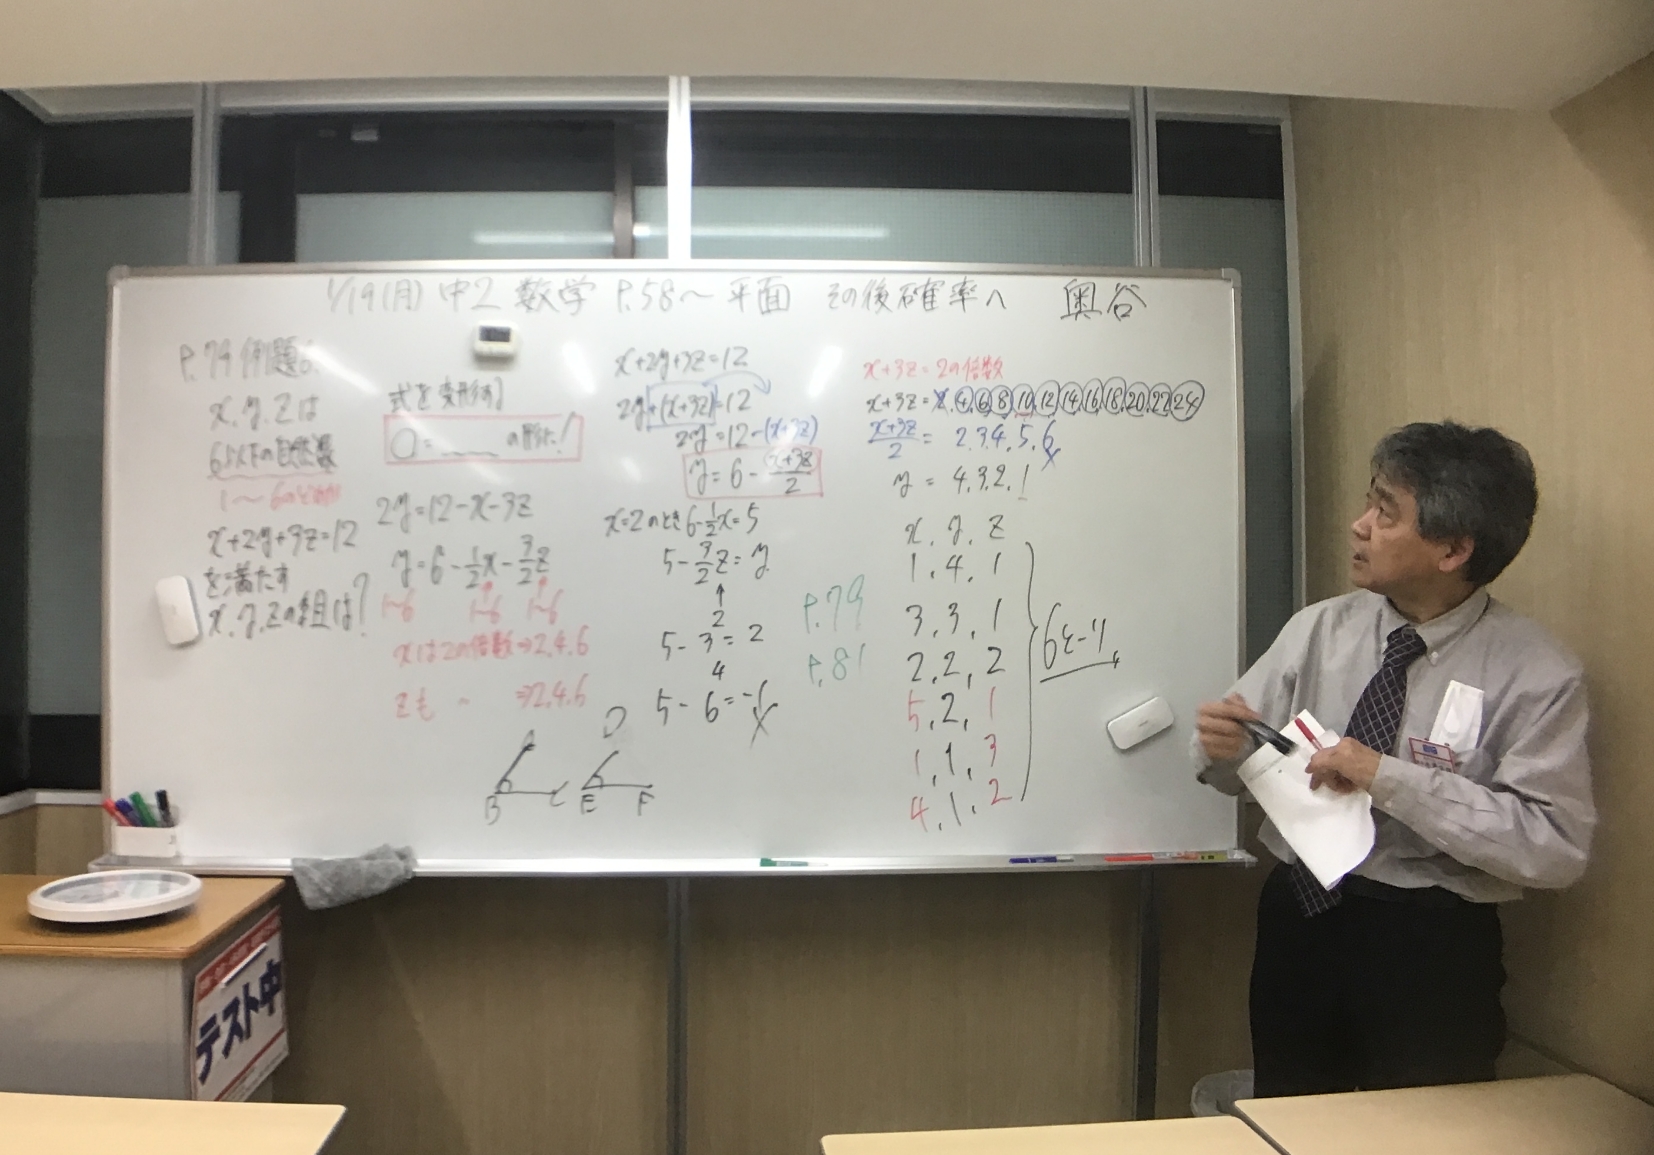 1/19(月) 中2 数学 P.58〜平面 その後確率へ 奥谷
P.79 例題6.
x.y.zは
6以下の自然数
1〜6のどれか
x+2y+3z=12
を満たす
x.y.zの組は?
式を変形する
○=____の形に!
2y=12-x-3z
y=6-1/2x-3/2z
1~6 1~6 1~6
xは2の倍数⇒2.4.6
zも 〃 ⇒2.4.6
A
B C
D
E F
x+2y+3z=12
2y+(x+3z)=12
2y=12-(x+3z)
y=6-(x+3z)/2
x=2のとき6-1/2x=5
5-3/2z=y
↑
2
5-3=2
4
5-6=-1
P.79
P.81
x+3z=2の倍数
x+3z=2.4.6.8.10.12.14.16.18.20.22.24
(x+3z)/2=2.3.4.5.6
y=4.3.2.1
x.y.z
1.4.1
3.3.1
2.2.2
5.2.1
1.1.3
4.1.2
6セット
テスト中